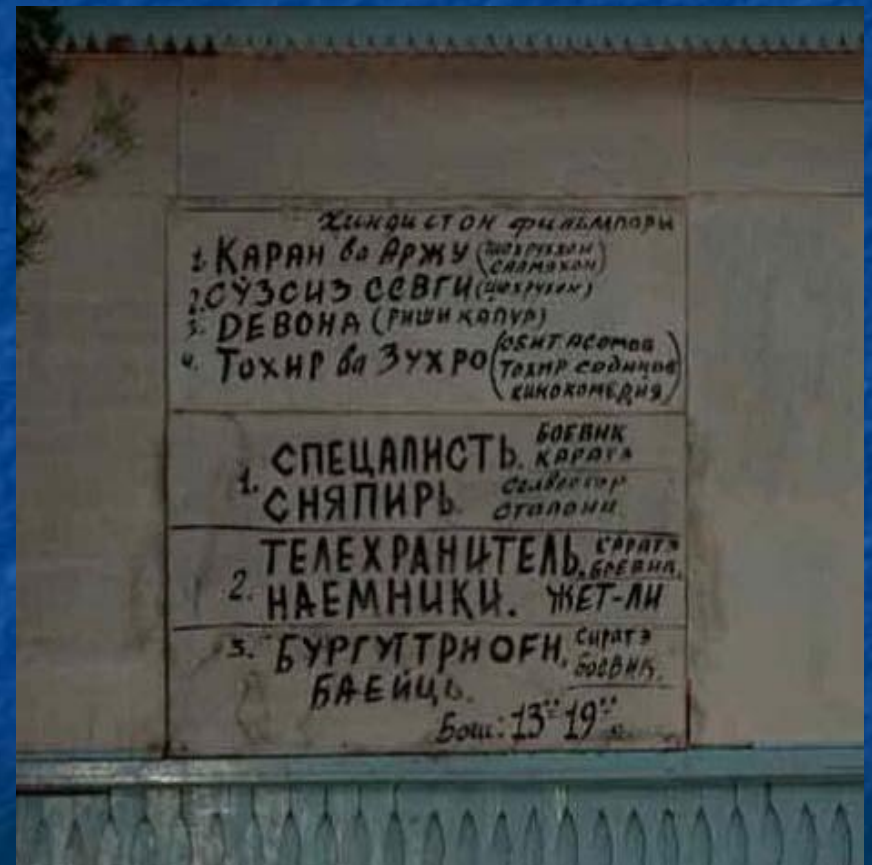 Хиндистон фильмлари
1. КАРАН ва АРЖУ (ШОХРУХХОН САЛМАХОН)
2. СЎЗСИЗ СЕВГИ (ШОХРУХОН)
3. DЕВОНА (РИШИ КАПУР)
4. ТОХИР ва ЗУХРО (ОБИТ АСОМОВ
ТОХИР СОДИКОВ
КИНОКОМЕДИЯ)
1. СПЕЦАЛИСТЬ. БОЕВИК КАРАТЭ
СНЯПИРЬ. СЕЛВЕСТОР СТАЛОНИ.
2. ТЕЛЕХРАНИТЕЛЬ. КАРАТЭ БОЕВИК.
НАЕМНИКИ. ЖЕТ-ЛИ
3. БУРГУТТРНОҒН. СИРАТЭ БОЕВИК.
БАЕЙЦЬ.
Бош: 13 19